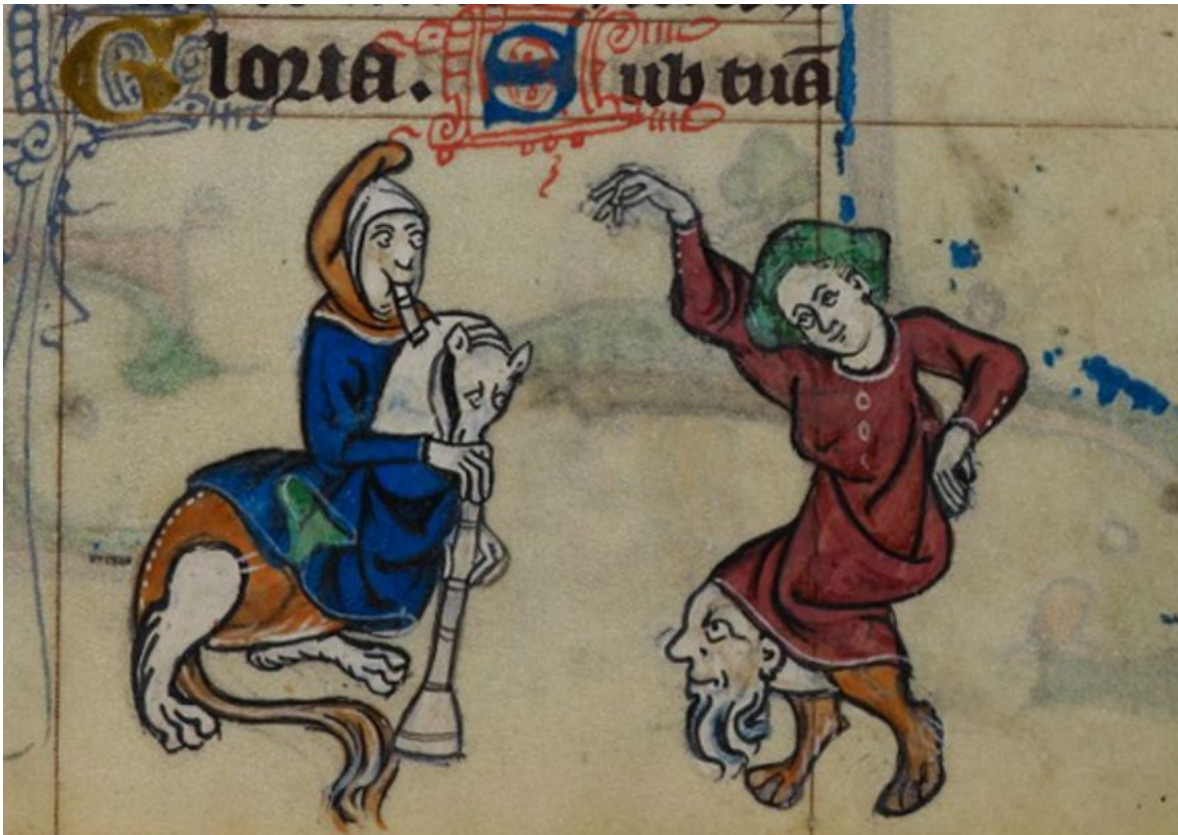 Gloria. Sub tuā